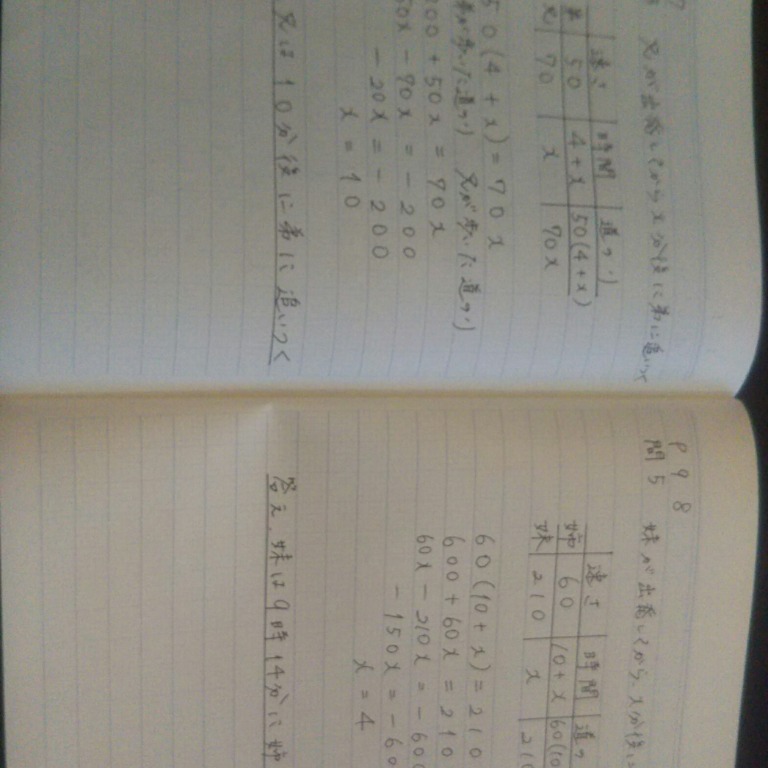 7
兄が出発してからx分後に弟に追いつく
速さ 時間 道のり
弟 50 4+x 50(4+x)
兄 70 x 70x
50(4+x)=70x
弟が歩いた道のり 兄が歩いた道のり
200+50x=70x
50x-70x=-200
-20x=-200
x=10
兄は10分後に弟に追いつく
P98
問5 妹が出発してから、x分後に
速さ 時間 道の
姉 60 10+x 60(10
妹 210 x 210
60(10+x)=210
600+60x=210
60x-210x=-600
-150x=-60
x=4
答え、妹は9時14分に姉